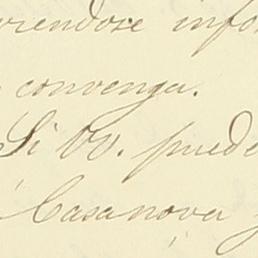 rendose info
convenga.
Si VV. puede
Casanova y